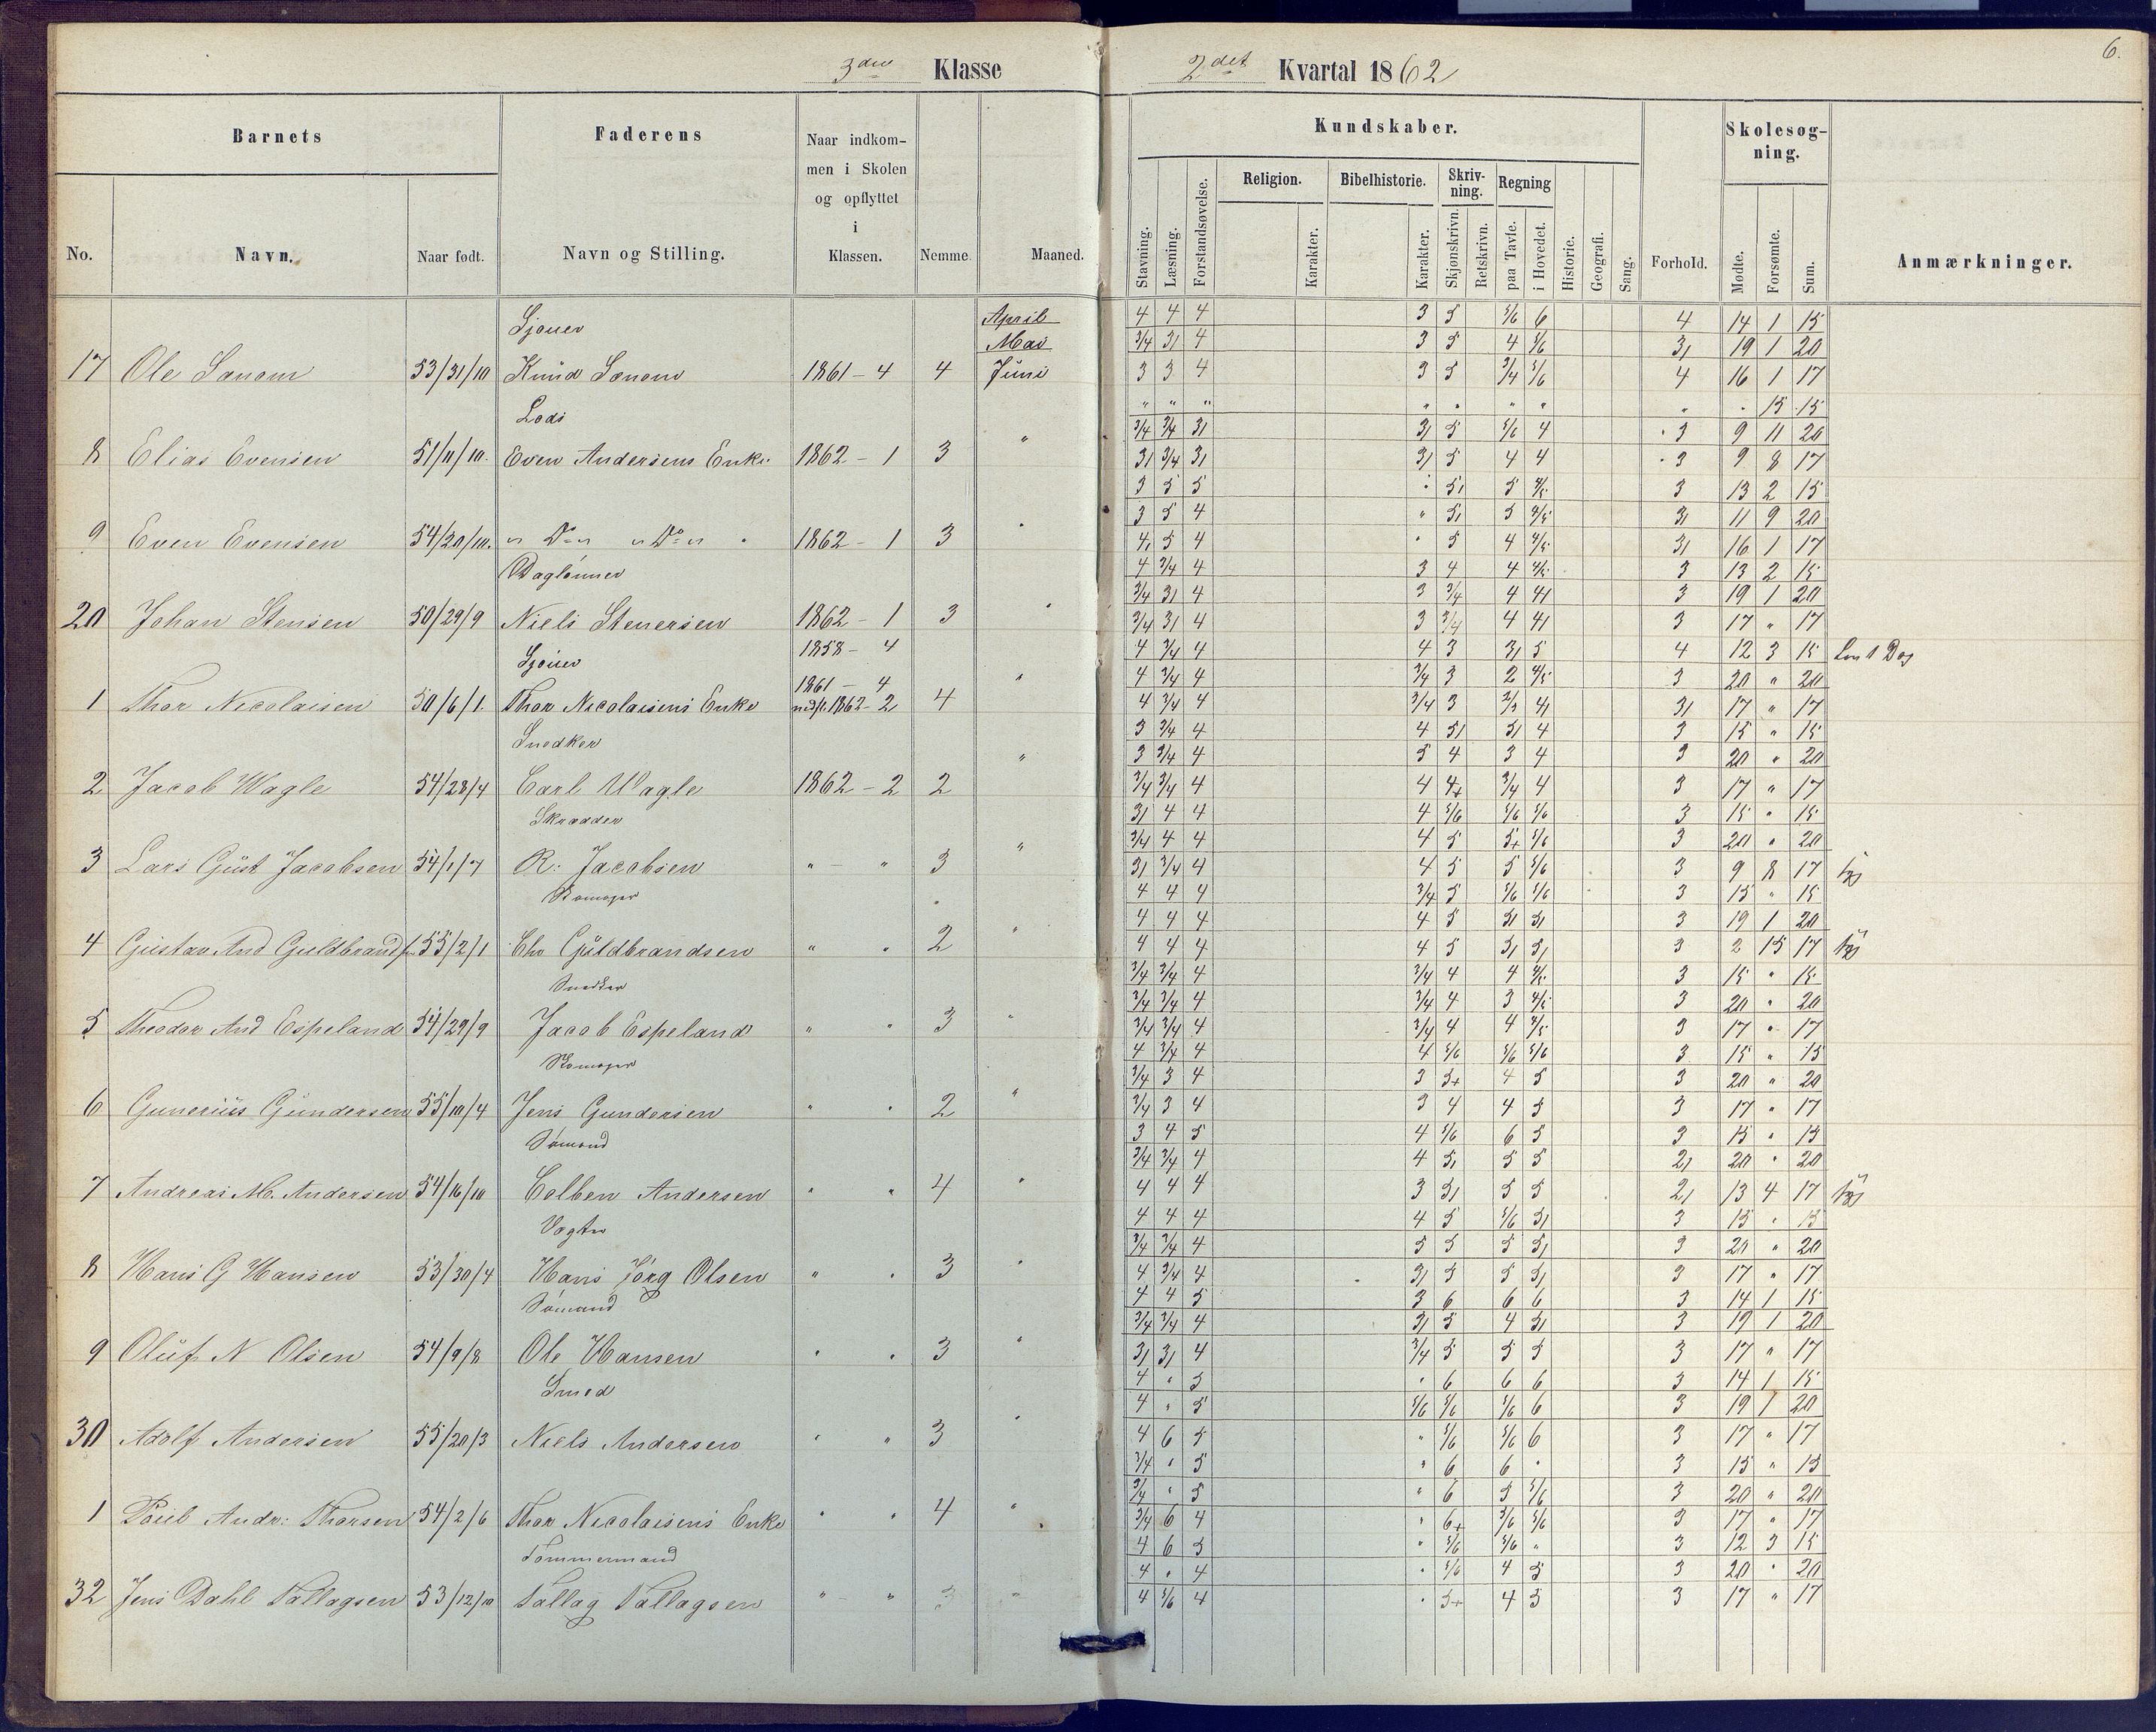 3die Klasse
2det Kvartal 1862
6.
Barnets
Faderens
Naar indkom-
men i Skolen
og opflyttet
i
Klassen.
Kundskaber.
Skolesøg-
ning.
Religion.
Bibelhistorie.
Skriv-
ning.
Regning
No.
Navn.
Naar født.
Navn og Stilling.
Nemme
Maaned.
Stavning.
Læsning.
Forstandsøvelse.
Karakter.
Karakter.
Skjønskrivn.
Retskrivn.
paa Tavle.
i Hovedet.
Historie.
Geografi.
Sang.
Forhold.
Mødte.
Forsømte.
Sum.
Anmærkninger.
Sjouer April 4 4 4 3 5 5/6 6 4 14 1 15
Mai 3/4 3/ 4 3 5 4 5/6 3/ 19 1 20
17 53/31/10 Knud 1861-4 4 Juni 3 3 4 3 5 3/4 5/6 4 16 1 17
Ole
Lods " " " " " " " " " 15 15
3/4 3/4 3/ 3/ 5 5/6 4 3 9 11 20
8 Elias Evensen 51/11/10 Even Andersens Enke 1862-1 3 " 3/ 3/4 3/ 3/ 5 4 4 3 9 8 17
3 5 5 " 5/ 5 4/5 3 13 2 15
3 5 4 " 5/ 5 4/5 3/ 11 9 20
9 Even Evensen 54/20/10 " Do " " Do " 1862-1 3 " 4/ 5 4 " 5 4 4/5 3/ 16 1 17
Daglønner 4 3/4 4 3 4 4 4/5 3 13 2 15
3/4 3/ 4 3 3/4 4 4/ 3 19 1 20
20 Johan Stensen 50/29/9 Niels Stenersen 1862-1 3 " 3/4 3/ 4 3 3/4 4 4/ 3 17 " 17
Sjouer 1858-4 4 3/4 4 4 3 3/ 5 4 12 3 15 1 Dag
1861-4 4 3/4 4 3/4 3 2 4/5 3 20 " 20
1 Thor Nicolaisen 50/6/1 Thor Nicolaisens Enke nedfl. 1862-2 4 " 4 3/4 4 3/4 3 4/ 3/ 17 " 17
Snedker 3 3/4 4 4 5/ 3/ 4 3 15 " 15
3 3/4 4 5 4 3 4 3 20 " 20
2 Jacob Wagle 54/28/4 Carl Wagle 1862-2 2 " 3/4 3/4 4 4 4+ 3/4 4 3 17 " 17
Skrædder 3/ 4 4 4 5/6 5/6 5/6 3 15 " 15
3/4 4 4 4 5 5+ 5/6 3 20 " 20
3 Lars Gust Jacobsen 54/1/7 R. Jacobsen " - " 3 " 3/ 3/4 4 4 5 5 5/6 3 9 8 17 syg
Skomager 4 4 4 3/4 5 5/6 5/6 3 15 " 15
4 4 4 4 5 5/ 5/ 3 19 1 20
4 Gustav And Guldbrandsen 55/2/1 Chr Guldbrandsen " " 2 " 4 4 4 4 5 5/ 5/ 3 2 15 17 syg
Snedker 3/4 3/4 4 3/4 4 4 4/5 3 15 " 15
3/4 3/4 4 3/4 4 3 4/5 3 20 " 20
5 Theodor And Espeland 54/29/9 Jacob Espeland " " 3 " 3/4 3/4 4 3/4 4 4 4/5 3 17 " 17
Skomager 4 3/4 4 4 5/6 5/6 5/6 3 15 " 15
3/4 3 4 3 5+ 4 5 3 20 " 20
6 Gunerius Gundersen 55/10/4 Jens Gundersen " " 2 " 3/4 3 4 3 4 4 5 3 17 " 17
Sømand 3 4 5 4 5/6 6 5 3 15 " 15
3/4 3/4 4 4 5/ 5 5 2/ 20 " 20
7 Andreas M. Andersen 54/16/10 Colben Andersen " " 4 " 4 4 4 3 5/ 5 5 2/ 13 4 17 syg
Vægter 4 4 4 4 5 5/6 5/ 3 15 " 15
3/4 3/4 4 5 5 5 5/ 3 20 " 20
8 Hans G Hansen 53/30/4 Hans Jørg Olsen " " 3 " 4 3/4 4 3/ 5 5 5/ 3 17 " 17
Sømand 4 4 5 3 6 6 6 3 14 1 15
3/4 3/4 4 3/ 5 4 5/ 3 19 1 20
9 Oluf N Olsen 54/9/8 Ole Hansen " " 3 " 3/ 3/ 4 3/4 5 5 5 3 17 " 17
Smed 4 " 5 " 6 6 6 3 14 1 15
4 " 5 5/6 5/6 5/6 6 3 19 1 20
30 Adolf Andersen 55/20/3 Niels Andersen " " 3 " 4 6 5 " 5/6 5/6 6 3 17 " 17
3/4 " 5 " 6 6 " 3 15 " 15
3/4 " 5 " 6 5 5/6 3 20 " 20
1 Poul Andr: Thorsen 54/2/6 Thor Nicolaisens Enke " " 4 " 3/4 6 4 " 6+ 5/6 5/6 3 17 " 17
Tømmermand 4 6 5 " 5/6 5/6 " 3 12 3 15
4 " 4 " 5/6 4 5 3 20 " 20
32 Jens Dahl Tallagsen 53/12/10 Tallag Tallagsen " - " 3 " 4 5/6 4 " 5+ 4 5 3 17 " 17